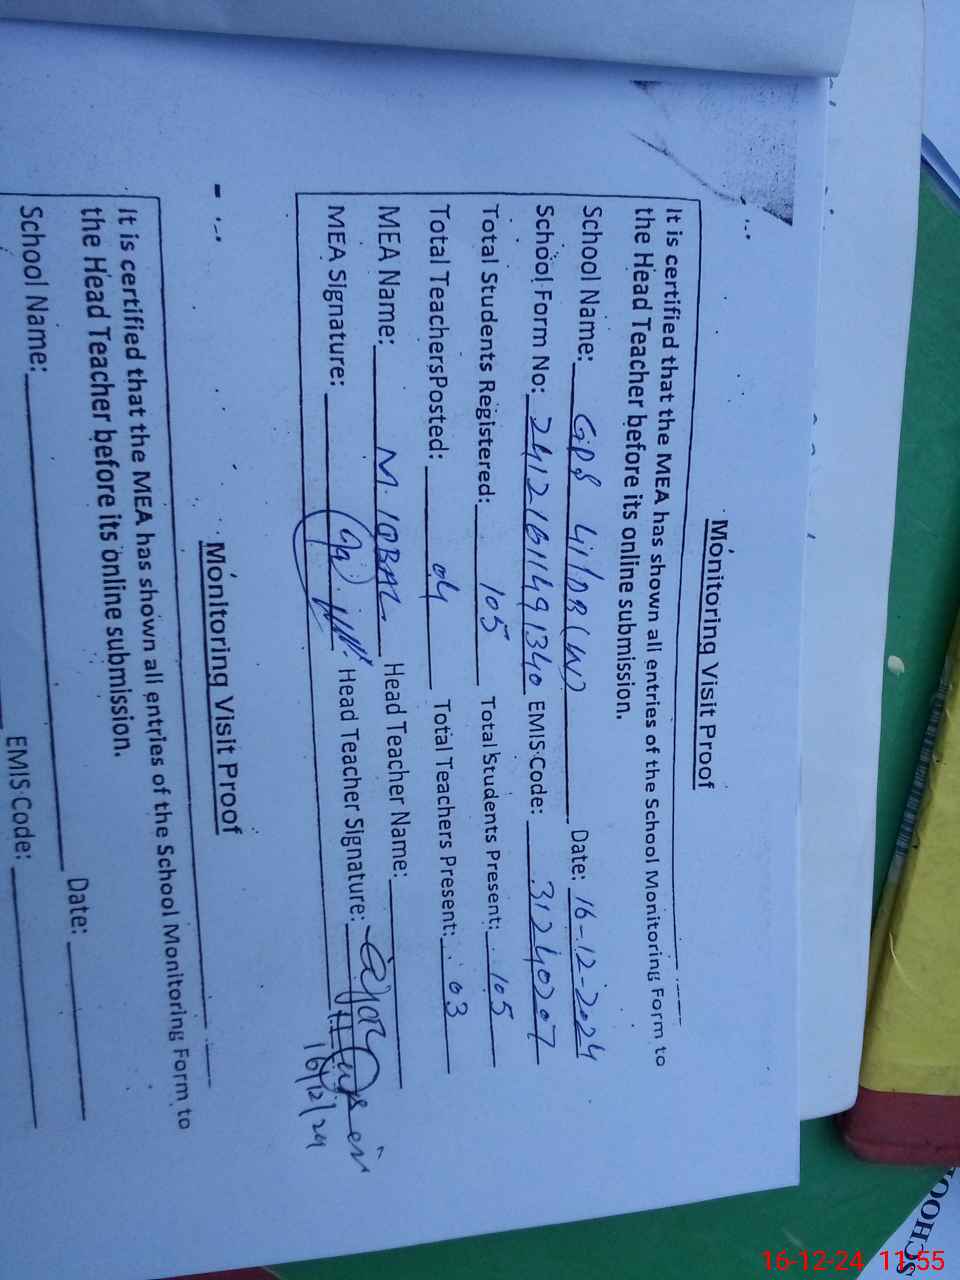 Monitoring Visit Proof
It is certified that the MEA has shown all entries of the School Monitoring Form to
the Head Teacher before its online submission.
School Name: GPS 41/DB (W) Date: 16-12-2024
School Form No: 24121611491340 EMIS Code: 31240207
Total Students Registered: 105 Total Students Present: 105
Total TeachersPosted: 04 Total Teachers Present: 03
MEA Name: M. IQBAL Head Teacher Name:
MEA Signature: Head Teacher Signature:
16/12/24
Monitoring Visit Proof
It is certified that the MEA has shown all entries of the School Monitoring Form to
the Head Teacher before its online submission.
School Name: Date:
EMIS Code:
SCHOO
16-12-24 11:55